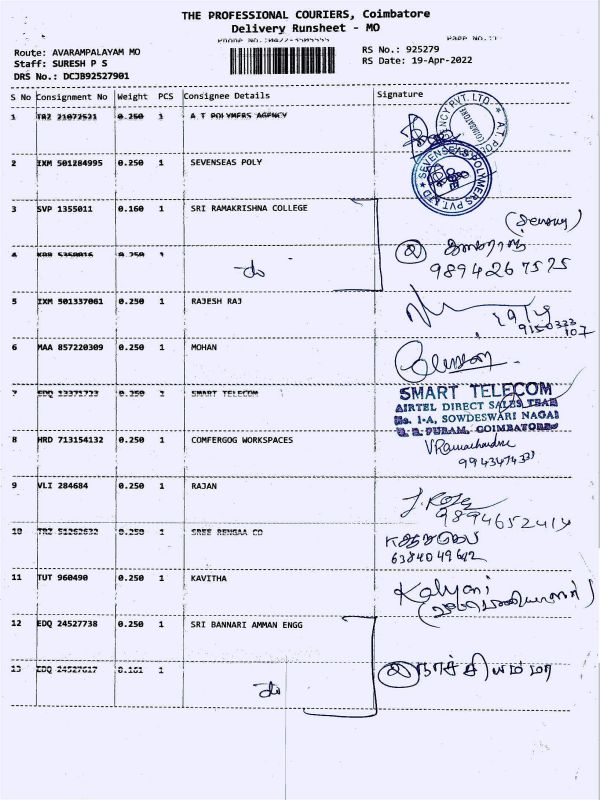 THE PROFESSIONAL COURIERS, Coimbatore
Delivery Runsheet - MO
Page No.:1
Route: AVARAMPALAYAM MO
RS No.: 925279
Staff: SURESH P S
RS Date: 19-Apr-2022
DRS No.: DCJB92527901
S No Consignment No Weight PCS Consignee Details Signature
1 TRZ 21072521 0.250 1 A T POLYMERS AGENCY
2 IXM 501284995 0.250 1 SEVENSEAS POLY
SEVENSEAS POLYMERS PVT. LTD
3 SVP 1355011 0.160 1 SRI RAMAKRISHNA COLLEGE
4 0.250 1 -do
9894267525
5 IXM 501337061 0.250 1 RAJESH RAJ
9150333
107
6 MAA 857220309 0.250 1 MOHAN
7 EDQ 13371723 0.250 1 SMART TELECOM
SMART TELECOM
AIRTEL DIRECT SALES TEAM
No. 1-A, SOWDESWARI NAGAR
PURAM, COIMBATORE
8 HRD 713154132 0.250 1 COMFERGOG WORKSPACES
V Ramachandran
9 VLI 284684 0.250 1 RAJAN
10 TRZ 51262632 0.250 1 SREE RENGAA CO
6384049642
11 TUT 960490 0.250 1 KAVITHA
Kalyani
12 EDQ 24527738 0.250 1 SRI BANNARI AMMAN ENGG
13 EDQ 24527617 0.161 1 do
நாச்சியம்மா